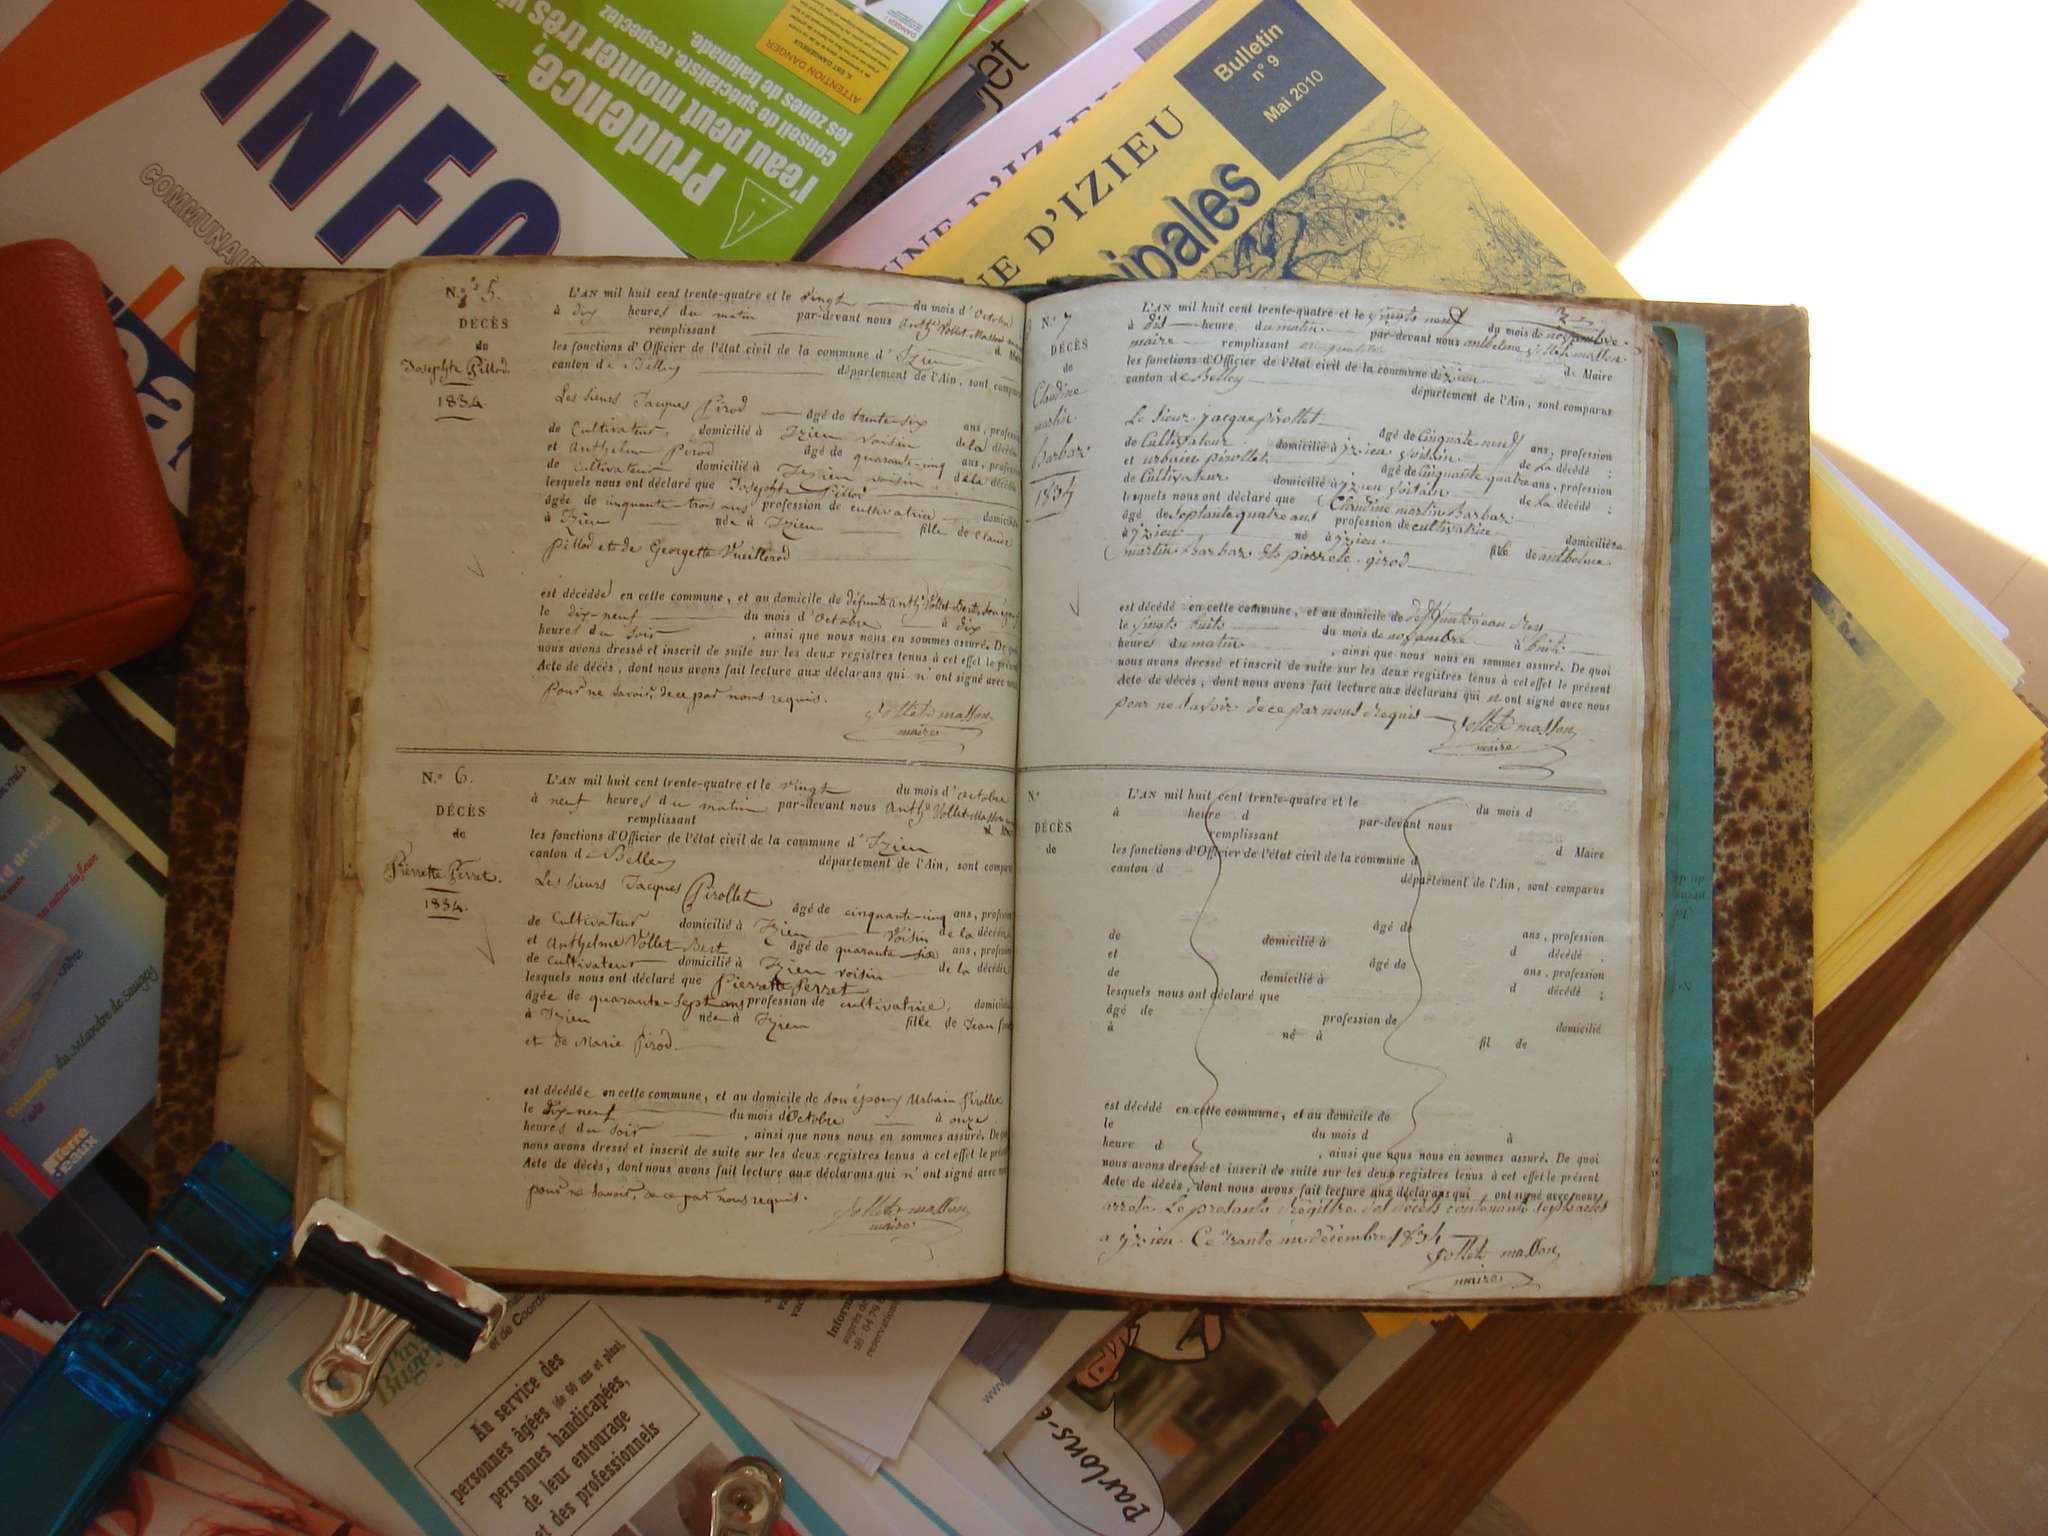 INFO
COMMUNALE
Prudence,
l'eau peut monter très vi
conseil de spécialiste, respectez
les zones de baignade.
ATTENTION DANGER
jet
Bulletin
n° 9
Mai 2010
UNE D'IZIEU
NE D'IZIEU
ipales
N.° 5.
DÉCÈS
de
Josephte Pillod.
1834.
L'AN mil huit cent trente-quatre et le vingt du mois d'Octobre
à dix heures du matin par-devant nous Anthe Vollet-Masson
remplissant d. Maire
les fonctions d'Officier de l'état civil de la commune d'Izieu
canton de Belley département de l'Ain, sont comparus
Les sieurs Jacques Pirod âgé de trente-six ans, profession
de Cultivateur, domicilié à Izieu voisin de la décédée
et Anthelme Pirod âgé de quarante-cinq ans, profession
de cultivateur domicilié à Izieu voisin de la décédée
lesquels nous ont déclaré que Josephte Pillod
âgée de cinquante-trois ans profession de cultivatrice domiciliée
à Izieu née à Izieu fille de Claude
Pillod et de Georgette Vueillerod
est décédée en cette commune, et au domicile de défunt Anthe Vollet-Bert, son époux
le dix-neuf du mois d'Octobre à dix
heures du soir, ainsi que nous nous en sommes assuré. De quoi
nous avons dressé et inscrit de suite sur les deux registres tenus à cet effet le présent
Acte de décès, dont nous avons fait lecture aux déclarans qui n'ont signé avec nous
pour ne savoir, de ce par nous requis.
Vollet-masson
maire
N.° 6.
DÉCÈS
de
Pierrette Perret.
1834.
L'AN mil huit cent trente-quatre et le vingt du mois d'octobre
à neuf heures du matin par-devant nous Anthe Vollet-Masson
remplissant
les fonctions d'Officier de l'état civil de la commune d'Izieu
canton de Belley département de l'Ain, sont comparus
Les sieurs Jacques Pirollet
âgé de cinquante-cinq ans, profession
de Cultivateur domicilié à Izieu voisin de la décédée
et Anthelme Vollet-Bert âgé de quarante-six ans, profession
de cultivateur domicilié à Izieu voisin de la décédée
lesquels nous ont déclaré que Pierrette Perret
âgée de quarante-sept ans profession de cultivatrice, domiciliée
à Izieu née à Izieu fille de Jean
et de Marie Pirod.
est décédée en cette commune, et au domicile de son époux Urbain Pirollet
le dix-neuf du mois d'Octobre à onze
heures du soir, ainsi que nous nous en sommes assuré. De quoi
nous avons dressé et inscrit de suite sur les deux registres tenus à cet effet le présent
Acte de décès, dont nous avons fait lecture aux déclarans qui n'ont signé avec nous
pour ne savoir, de ce par nous requis.
Vollet-masson
maire
N.° 7
DÉCÈS
de
Claudine
martin
Barbaz
1834
L'AN mil huit cent trente-quatre et le vingts neuf du mois de novembre
à dis heure du matin par-devant nous anthelme Vollet masson
maire remplissant d. Maire
les fonctions d'Officier de l'état civil de la commune d'izieu
canton de Belley département de l'Ain, sont comparus
Le sieur jacque pirollet
âgé de cinquate neuf ans, profession
de Cultivateur domicilié à yzieu voisin de la décédé ;
et urbain pirollet âgé de cinquante quatre ans, profession
de Cultivateur domicilié à yzieu voisin de la décédé ;
lesquels nous ont déclaré que Claudine martin Barbaz
âgé de septante quatre ans profession de cultivatrice domiciliée
à yzieu né à yzieu fille de anthelme
martin Barbaz et de pierrete girod
est décédé en cette commune, et au domicile de
le vingts huits du mois de novembre à huit
heures du matin, ainsi que nous nous en sommes assuré. De quoi
nous avons dressé et inscrit de suite sur les deux registres tenus à cet effet le présent
Acte de décès, dont nous avons fait lecture aux déclarans qui n ont signé avec nous
pour ne savoir de ce par nous requis
Vollet masson
maire
N.°
DÉCÈS
de
L'AN mil huit cent trente-quatre et le du mois d
à heure d par-devant nous
remplissant d Maire
les fonctions d'Officier de l'état civil de la commune d
canton d département de l'Ain, sont comparus
âgé de ans, profession
de domicilié à d décédé ,
et âgé de ans, profession
de domicilié à d décédé ;
lesquels nous ont déclaré que
âgé de profession de domicilié
à né à fil de
est décédé en cette commune, et au domicile de
le du mois d à
heure d , ainsi que nous nous en sommes assuré. De quoi
nous avons dressé et inscrit de suite sur les deux registres tenus à cet effet le présent
Acte de décès, dont nous avons fait lecture aux déclarans qui ont signé avec nous
arrete Le presants Registre des décès contenants septs actes
a yzieu. Ce trante un décembre 1834
Vollet masson
maire
Découverte du Méandre de Sauvgey
Terre
d'eaux
Au service des
personnes âgées (de 60 ans et plus),
personnes handicapées,
de leur entourage
et des professionnels
Bugey
www.
Parlons-